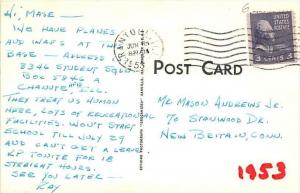 Hi, Mase —
We have planes
and WAFs at this
base — Address:
8346 Student Squad
Box 5846
Chanute AFB, Ill.
They treat us human
here, lots of recreational
facilities. Won't start
school till July 29
and can't get a leave.
KP tonite for 18
straight hours.
See you later —
Ray
JUN 15
UNITED STATES
POSTAGE
3 CENTS 3
POST CARD
Mr Mason Andrews Jr.
70 Stanwood Dr.
New Britain, Conn.
1953